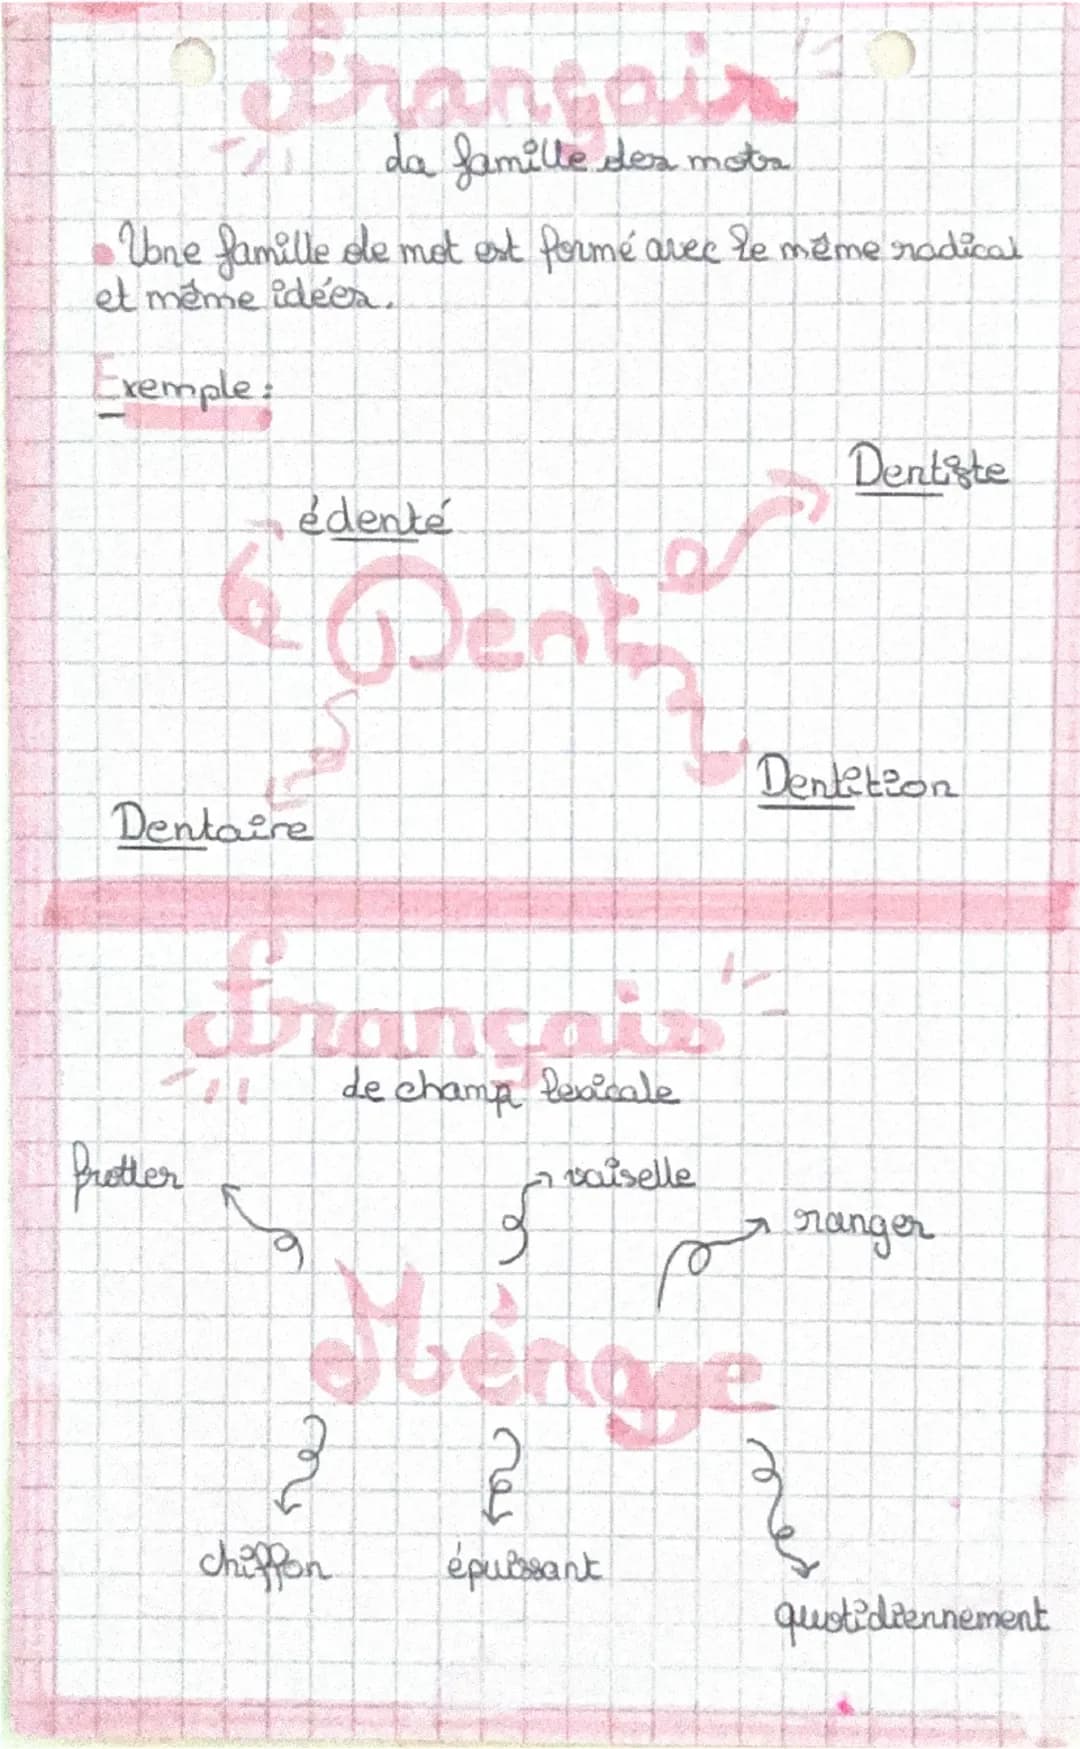 Français
La famille des mots
• Une famille de mot est formé avec le même radical
et même idées.
Exemple :
Dentiste
édenté
Dent
Dentition
Dentaire
Français
Le champ lexicale
frotter
vaiselle
ranger
Ménage
chiffon
épuissant
quotidiennement